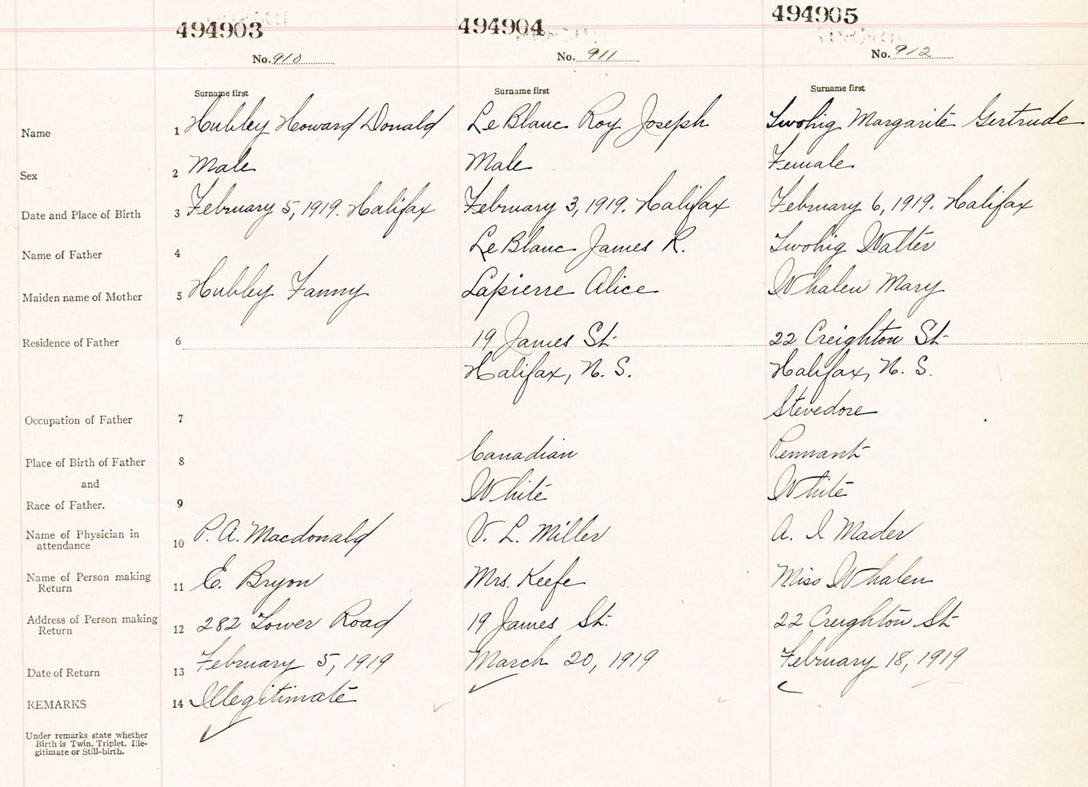 494903 494904 494905
No. 910 No. 911 No. 912
Surname first Surname first Surname first
Name 1 Hubley Howard Donald LeBlanc Roy Joseph Twohig Margarite Gertrude
Sex 2 Male Male Female
Date and Place of Birth 3 February 5, 1919. Halifax February 3, 1919. Halifax February 6, 1919. Halifax
Name of Father 4 LeBlanc James R. Twohig Walter
Maiden name of Mother 5 Hubley Fanny Lapierre Alice Whalen Mary
Residence of Father 6 19 James St. 22 Creighton St.
Halifax, N. S. Halifax, N. S.
Occupation of Father 7 Stevedore
Place of Birth of Father 8 Canadian Pennant
and
Race of Father. 9 White White
Name of Physician in
attendance 10 P. A. Macdonald V. L. Miller A. I Mader
Name of Person making
Return 11 E. Bryon Mrs. Keefe Miss Whalen
Address of Person making
Return 12 282 Lower Road 19 James St. 22 Creighton St.
Date of Return 13 February 5, 1919 March 20, 1919 February 18, 1919
REMARKS 14 Illegitimate
Under remarks state whether
Birth is Twin, Triplet, Ille-
gitimate or Still-birth.